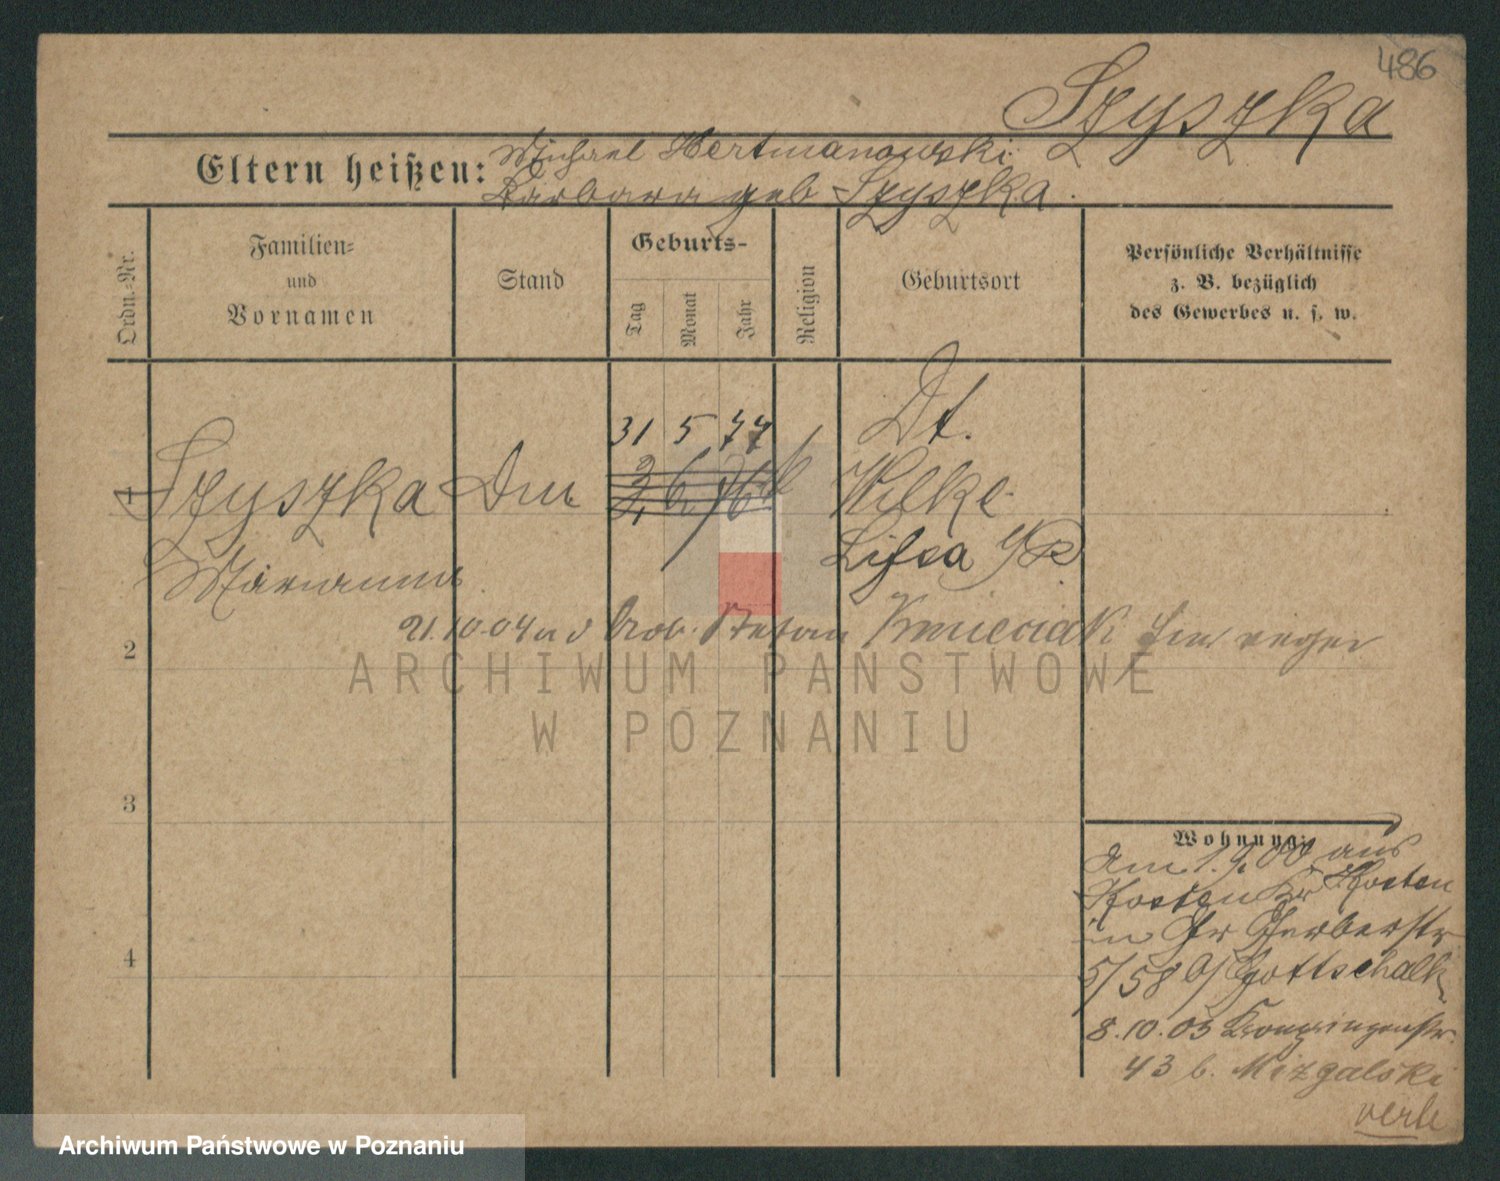 486
Szyszka
Eltern heißen: Michael Hertmanowski
Barbara geb Szyszka.
Ordn.-Nr.
Familien-
und
Vornamen
Stand
Geburts-
Tag
Monat
Jahr
Religion
Geburtsort
Persönliche Verhältnisse
z. B. bezüglich
des Gewerbes u. s. w.
31 5 77
Dt.
1 Szyszka
Wilke
Lissa
Marianna
21.10.04 Arb. Stefan Kmieciak
2
3
4
Wohnung:
am 1. 9. 00 aus
Kosten Kr Kosten
in Gerberstr
5/58 b/ Gottschalk
8.10.03 Kronprinzenstr.
43 b. Mizgalski
verh
ARCHIWUM PAŃSTWOWE
W POZNANIU
Archiwum Państwowe w Poznaniu